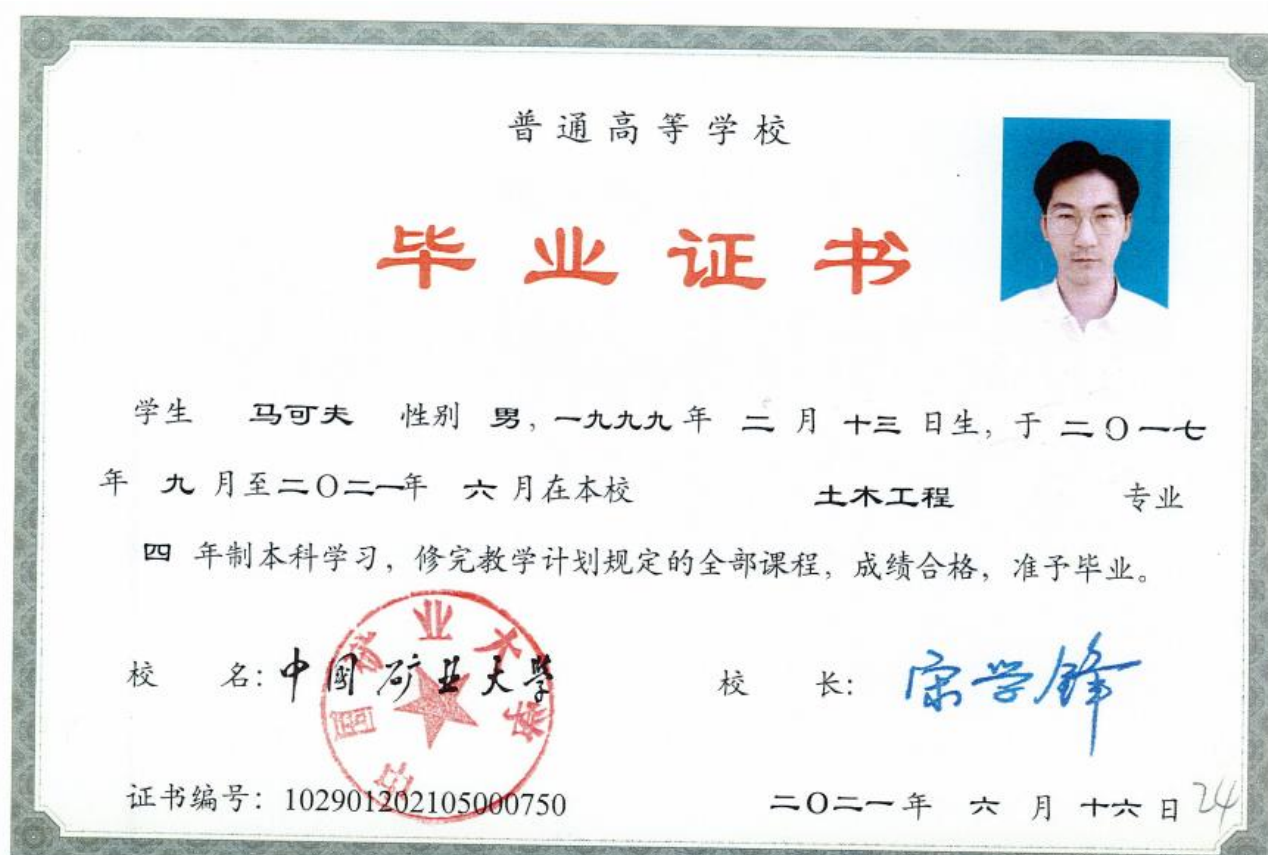 普通高等学校
毕业证书
学生 马可夫 性别 男，一九九九年 二 月 十三 日生，于 二〇一七
年 九 月至二〇二一年 六 月在本校 土木工程 专业
四 年制本科学习，修完教学计划规定的全部课程，成绩合格，准予毕业。
校 名：中国矿业大学
中国矿业大学
校 长：宋学锋
证书编号：102901202105000750
二〇二一年 六 月 十六 日
24